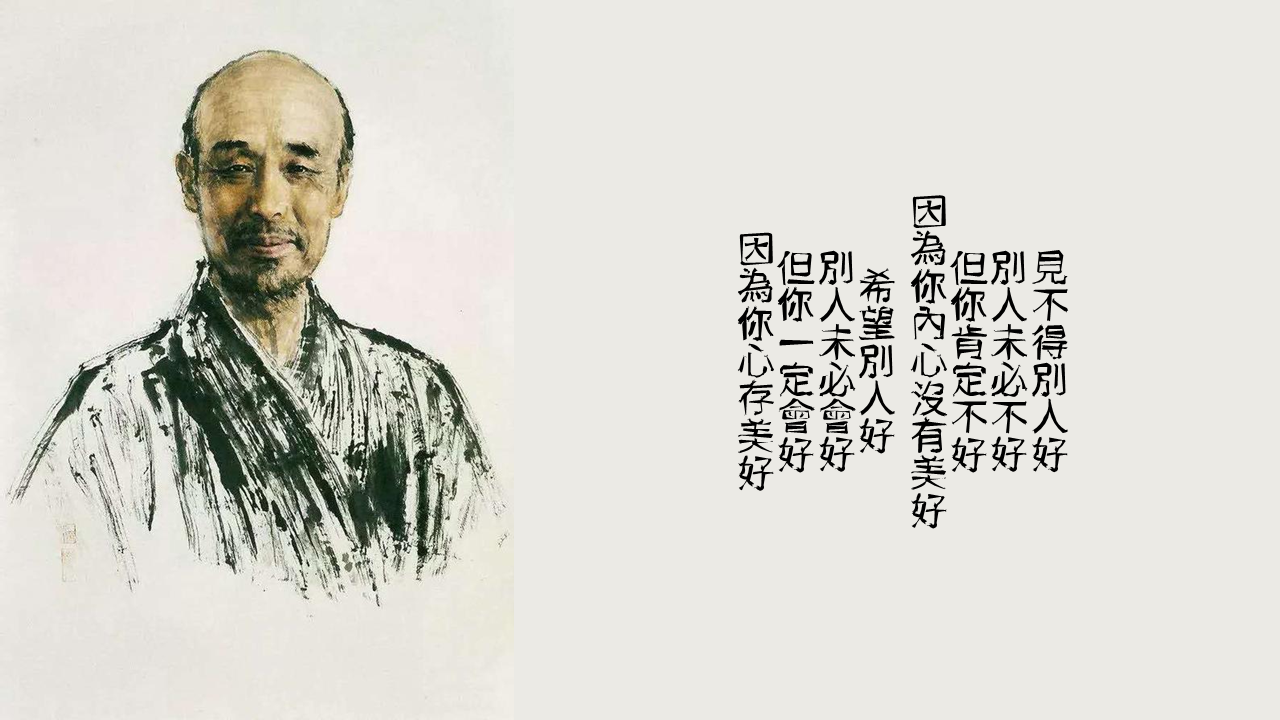 見不得別人好
別人未必不好
但你肯定不好
因為你內心沒有美好
希望別人好
別人未必會好
但你一定會好
因為你心存美好